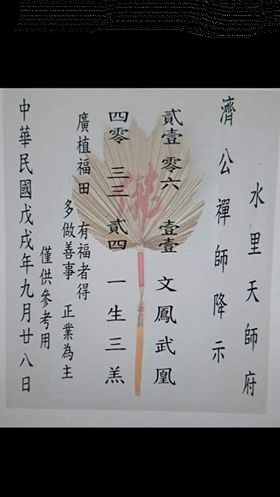 水里天師府
濟公禪師降示
貳壹 零六 壹壹 文鳳武凰
四零 三三 貳四 一生三羔
廣植福田 有福者得
多做善事 正業為主
僅供參考用
中華民國戊戌年九月廿八日